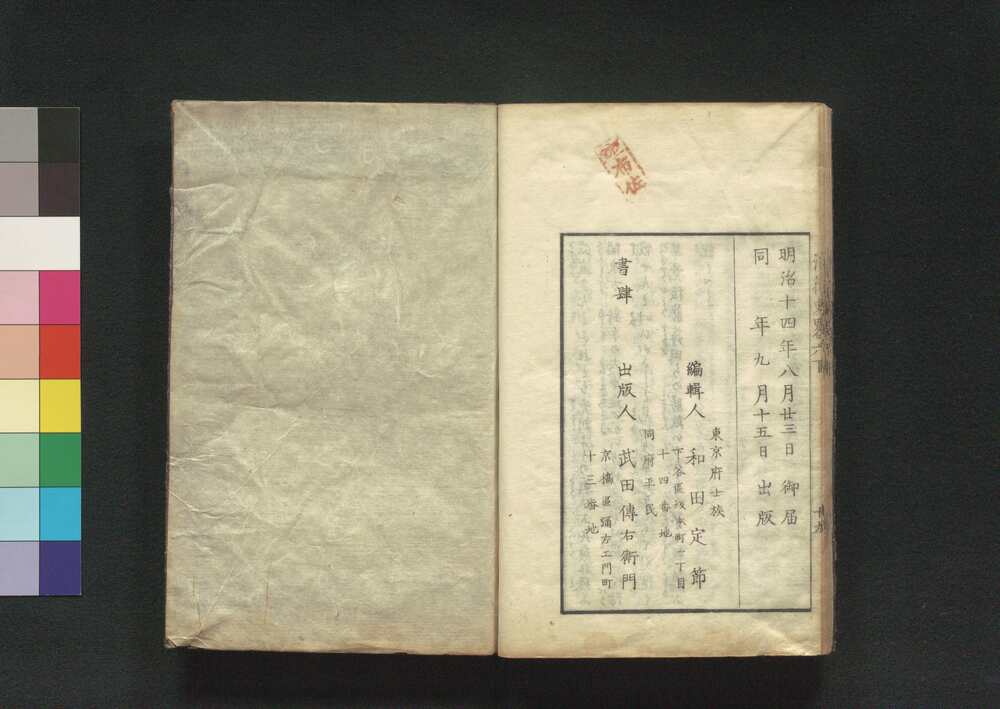 明治十四年八月廿三日 御届
同 年九月十五日 出版
東京府士族
下谷區茂木町一丁目
十四番地
編輯人 和田定節
同府平民
京橋區彌左エ門町
十三番地
書肆 出版人 武田傳右衛門